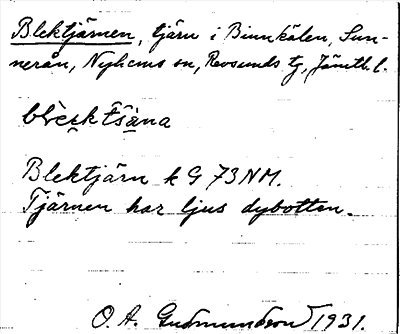 Blektjärnen, tjärn i Binnkälen, Sun-
nerån, Nyhems sn, Revsunds tg, Jämtl. l.
Blektjärn k G 73 NM.
Tjärnen har ljus dybotten.
O. A. Gudmundson 1931.